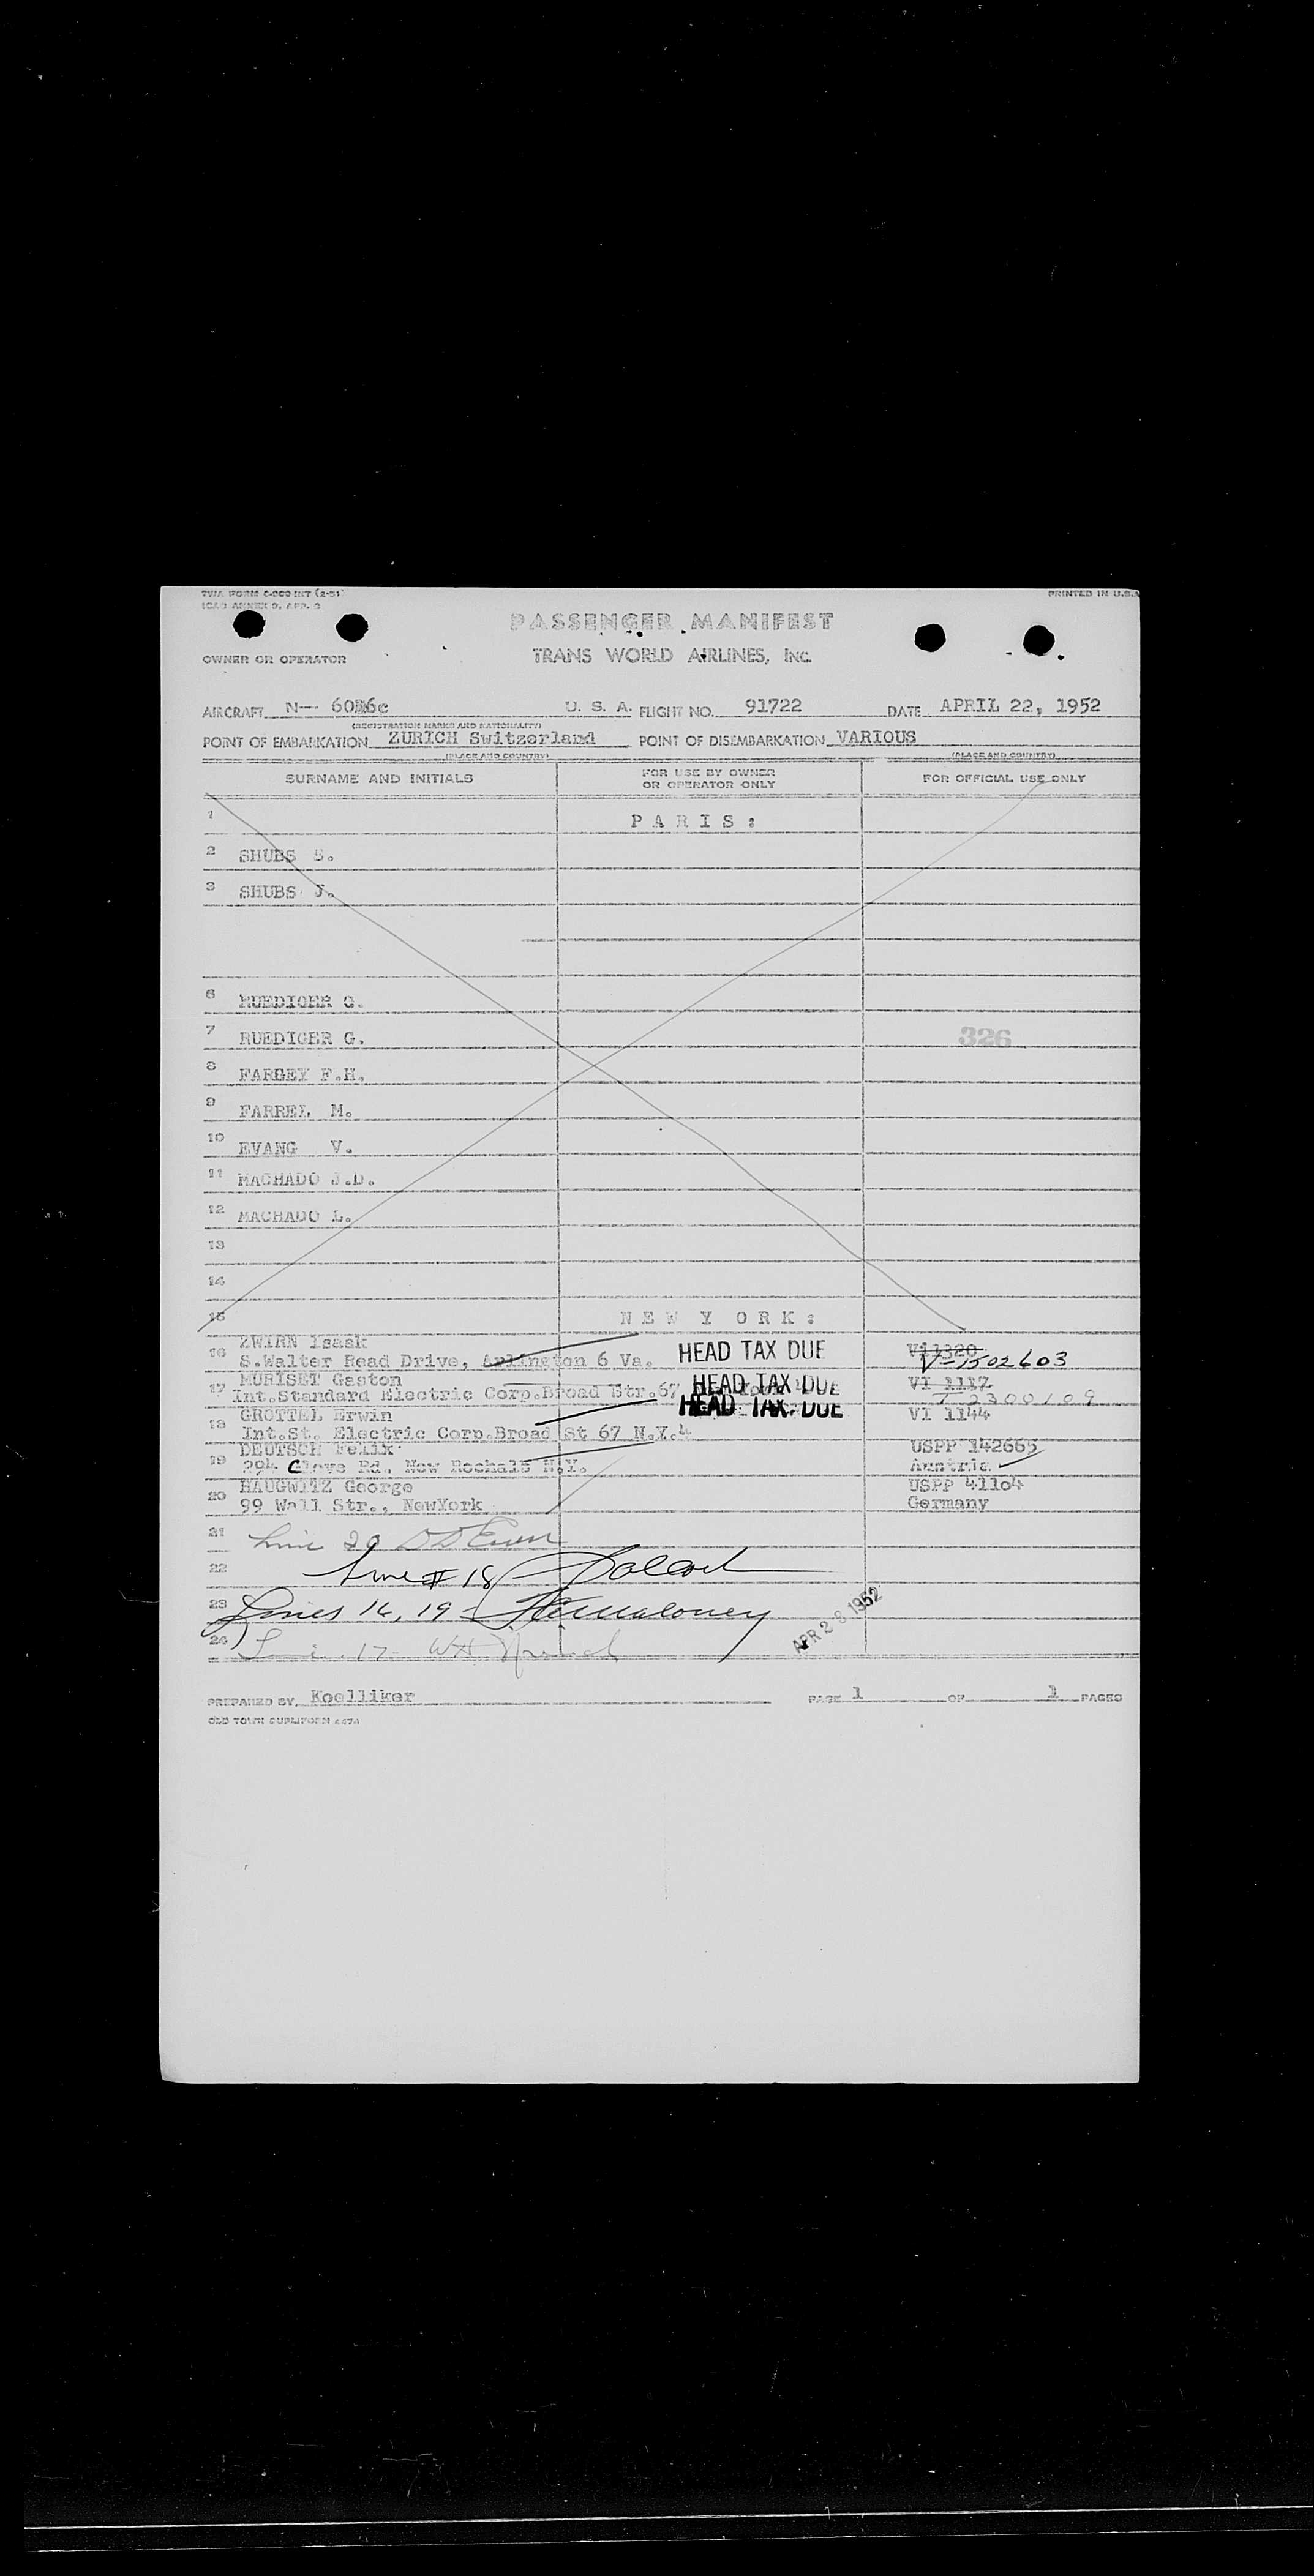 TWA FORM C-200 INT (2-51)
ICAO ANNEX 9, APP. 3
PRINTED IN U.S.A
PASSENGER MANIFEST
OWNER OR OPERATOR TRANS WORLD AIRLINES, INC.
AIRCRAFT N-- U. S. A. FLIGHT NO. 91722 DATE APRIL 22, 1952
(REGISTRATION MARKS AND NATIONALITY)
POINT OF EMBARKATION ZURICH Switzerland POINT OF DISEMBARKATION VARIOUS
(PLACE AND COUNTRY) (PLACE AND COUNTRY)
SURNAME AND INITIALS FOR USE BY OWNER OR OPERATOR ONLY FOR OFFICIAL USE ONLY
1 P A R I S :
2 SHUBS S.
3 SHUBS J.
6 RUEDIGER G.
7 RUEDIGER G. 326
8 FARBEY F.H.
9 FARREL M.
10 EVANG V.
11 MACHADO J.D.
12 MACHADO L.
13
14
15 N E W Y O R K :
ZWIRN Isaak
16 S.Walter Read Drive, Arlington 6 Va. HEAD TAX DUE V-1502603
MURISET Gaston HEAD TAX DUE VI 1117
17 Int.Standard Electric Corp.Broad Str.67
GROTTEL Erwin HEAD TAX DUE VI 1144
18 Int.St. Electric Corp.Broad St 67 N.Y.4
DEUTSCH Felix USPP 142665
19 294 Clove Rd, New Rochale N.Y. Austria
HAUGWITZ George USPP 41104
20 99 Wall Str., NewYork Germany
21 Line 20
22 Line # 18
23 Lines 16, 19 - Maloney
24 17 APR 28 1952
PREPARED BY Koelliker PAGE 1 OF 1 PAGES
OLD TOWN DUPLIFORM